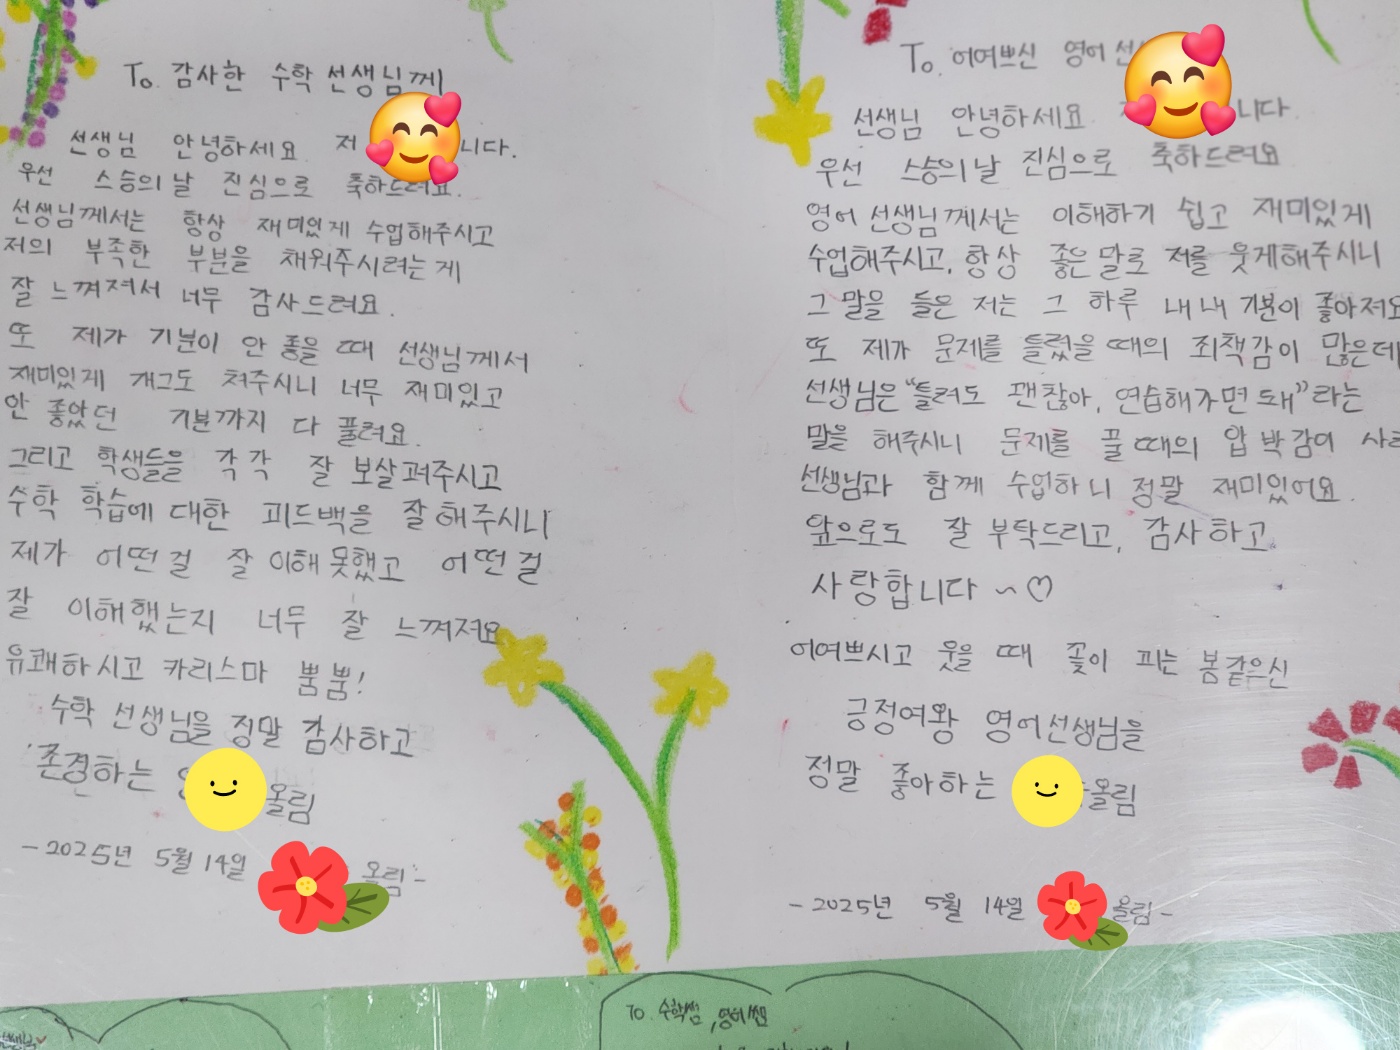 To. 감사한 수학 선생님께
선생님 안녕하세요 저 니다.
우선 스승의날 진심으로 축하드려요.
선생님께서는 항상 재미있게 수업해주시고
저의 부족한 부분을 채워주시려는게
잘 느껴져서 너무 감사드려요.
또 제가 기분이 안 좋을 때 선생님께서
재미있게 개그도 쳐주시니 너무 재미있고
안 좋았던 기분까지 다 풀려요.
그리고 학생들을 각각 잘 보살펴주시고
수학 학습에 대한 피드백을 잘해주시니
제가 어떤걸 잘 이해못했고 어떤걸
잘 이해했는지 너무 잘 느껴져요
유쾌하시고 카리스마 뿜뿜!
수학 선생님을 정말 감사하고
존경하는 올림
-2025년 5월 14일 올림-
To. 어여쁘신 영어
선생님 안녕하세요 니다.
우선 스승의날 진심으로 축하드려요
영어 선생님께서는 이해하기 쉽고 재미있게
수업해주시고, 항상 좋은 말로 저를 웃게해주시니
그 말을 들은 저는 그 하루 내내 기분이 좋아져요
또 제가 문제를 틀렸을 때의 죄책감이 많은데
선생님은 "틀려도 괜찮아, 연습해가면 돼"라는
말을 해주시니 문제를 풀 때의 압박감이
선생님과 함께 수업하니 정말 재미있어요.
앞으로도 잘 부탁드리고, 감사하고
사랑합니다 ~♡
어여쁘시고 웃을 때 꽃이 피는 봄같으신
긍정여왕 영어선생님을
정말 좋아하는 올림
-2025년 5월 14일 올림-
To. 수학쌤, 영어쌤